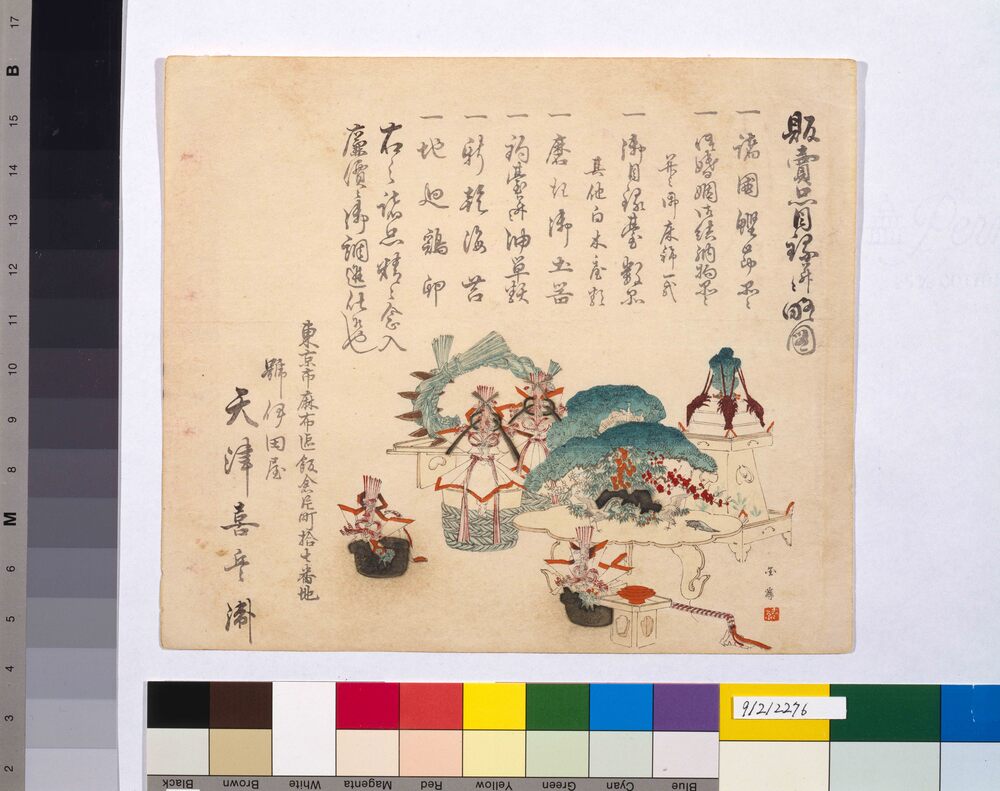 販賣品目録并ニ略圖
一 諸國鰹節品々
一 御婚姻御結納物品々
并ニ御床飾一式
一 御目録臺數品
其他白木臺類
一 磨土御土器
一 鈎臺并油單類
一 新乾海苔
一 地廻鶏卵
右之諸品精々念入
廉價ニ御調進仕候也
東京市麻布區飯倉片町拾七番地
號伊勢屋
天津喜兵衛
17
B
15
14
13
12
11
10
9
8
M
6
5
4
3
2
91212276
Black
Brown
White
Magenta
Red
Yellow
Green
Cyan
Blue